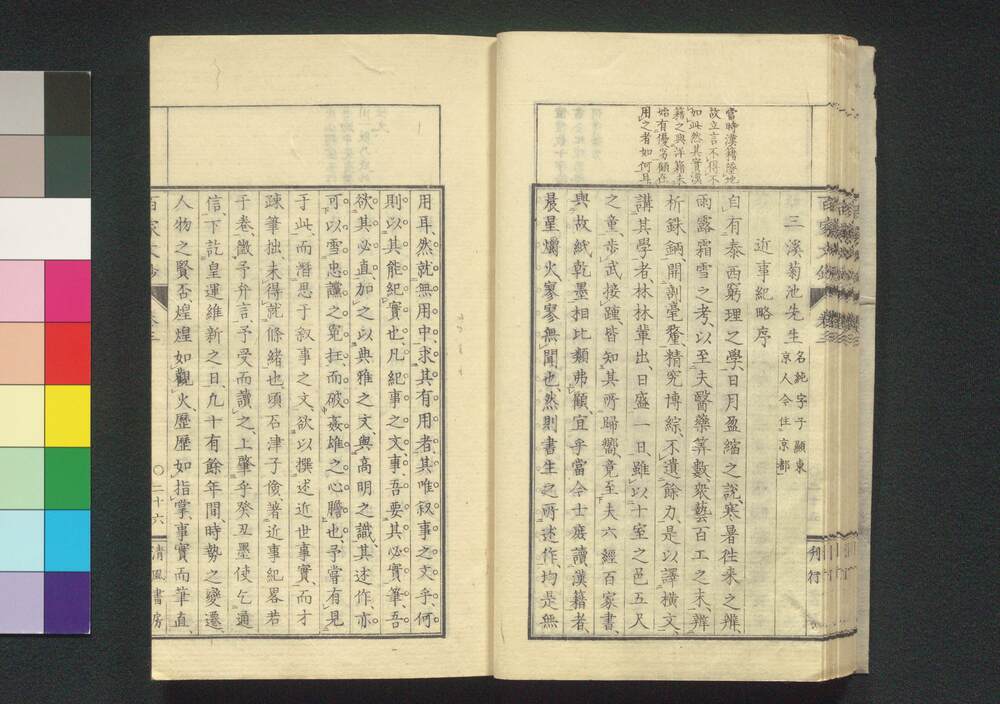 當時漢籍墜地
故立言不得不
如此然其實漢
籍之與洋籍未
始有優劣顧在
用之者如何耳
三溪菊池先生
名純字子顯東
京人今住京都
近事紀略序
自有泰西窮理之學、日月盈縮之說、寒暑往來之辨、
雨露霜雪之考、以至夫醫藥筭數、衆藝百工之末、辨
析銖錙、開剖毫釐、精究博綜、不遺餘力、是以譯橫文、
講其學者林林輩出、日盛一日、雖以十室之邑五尺
之童、步武接踵、皆知其所歸嚮、竟至夫六經百家書、
與故紙乾墨相比類弗顧、宜乎當今士庶讀漢籍者、
晨星爝火、寥寥無聞也、然則書生之所述作、均是無
刊行
用耳、然就無用中、求其有用者、其唯叙事之文乎、何
則以其能紀實也、凡紀事之文、事吾要其必實、筆吾
欲其必直、加之以典雅之文、與高明之識、其述作、亦
可以雪忠讜之冤抂、而破姦雄之心膽也、予嘗有見
于此、而潛思于叙事之文、欲以撰述近世事實、而才
疎筆拙、未得就條緒也、頃石津子儉、著近事紀畧若
干卷、徵予弁言、予受而讀之、上肇乎癸丑墨使乞通
信、下訖皇運維新之日、九十有餘年間、時勢之變遷、
人物之賢否、煌煌如觀火、歷歷如指掌、事實而筆直、
百家文鈔
卷三
○二十六
清風書房